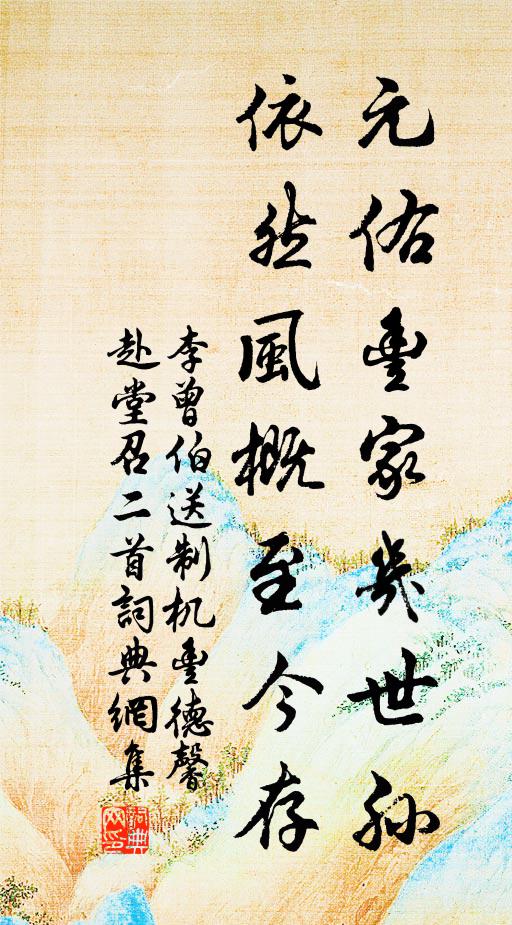 元佑豐家幾世孫
依然風概至今存
李曾伯送制机豐德馨
赴堂召二首詞典網集
詞典
网印